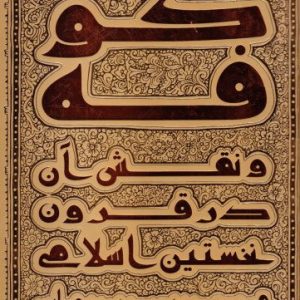 کوفه
و نقش آن
در قرون
نخستین اسلامی